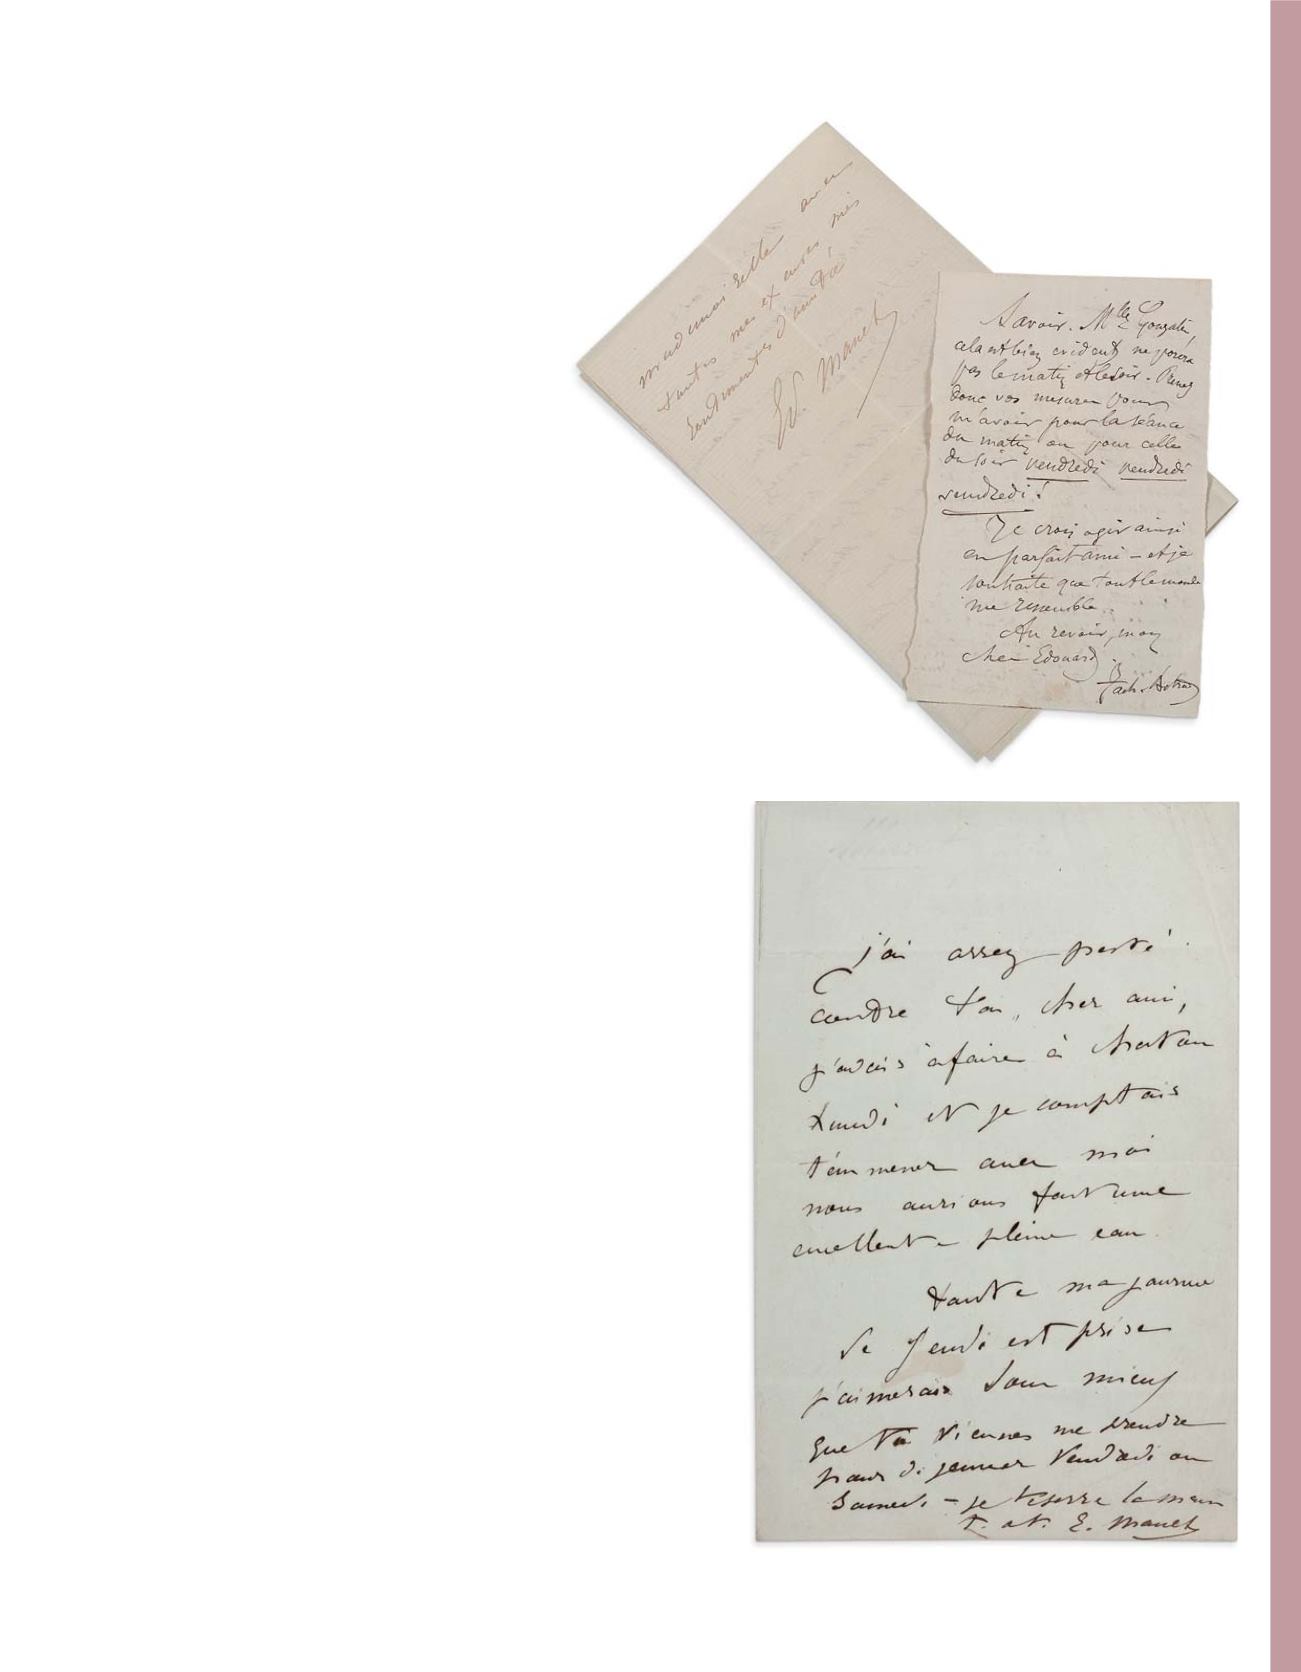 mademoiselle avec
toutes mes excuses mes
sentiments d'amitié
Ed. Manet
Savoir. Mlle Gonzalès,
cela est bien évident, ne posera
pas le matin et le soir. Prenez
donc vos mesures pour
m'avoir pour la séance
du matin ou pour celle
du soir vendredi vendredi
vendredi!
Je crois agir ainsi
en parfait ami – et je
souhaite que tout le monde
me ressemble.
Au revoir, mon
cher Edouard
Zach. Astruc
j'ai assez pesté
contre toi, cher ami,
j'avais à faire à Chatou
Lundi et je comptais
t'emmener avec moi
nous aurions fait une
excellente pleine eau.
toute ma journée
de Jeudi est prise
j'aimerais bien mieux
que tu viennes me prendre
pour déjeuner Vendredi ou
Samedi – je te serre la main
t. at. E. Manet